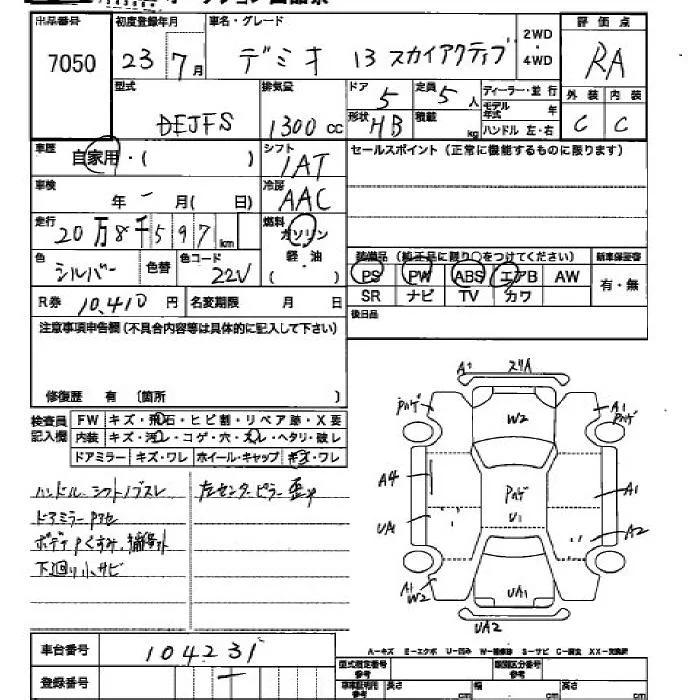 出品番号 初度登録年月 車名・グレード 2WD・4WD 評価点
7050 23 7月 デミオ 13 スカイアクティブ RA
型式 排気量 ドア 定員 ディーラー・並行 外装 内装
DEJFS 1300cc 5 5人 モデル年式 年
形状 HB 積載 kg ハンドル 左・右 C C
車歴 自家用・( ) シフト IAT セールスポイント(正常に機能するものに限ります)
車検 年 - 月( 日) 冷房 AAC
走行 20万8千597km 燃料 ガソリン
色 シルバー 色替 色コード 22V 軽・油 ( )
装備品(純正品に限り○をつけてください) 新車保証書
PS PW ABS エアB AW 有・無
SR ナビ TV カワ
R券 10,410円 名変期限 月 日 後日品
注意事項申告欄(不具合内容等は具体的に記入して下さい)
修復歴 有 〔箇所 〕
検査員記入欄 FW キズ・飛石・ヒビ割・リペア跡・X要
内装 キズ・汚レ・コゲ・穴・スレ・ヘタリ・破レ
ドアミラー キズ・ワレ ホイール・キャップ キズ・ワレ
ハンドル シフトノブスレ 左センターピラー歪み
ドアミラーPアセ
ボデーPくすみ、補修跡
下廻り小サビ
A1 スリA
Pハゲ W2 A1 Pハゲ
A4 Pハゲ A1
UA1 U1 A2
A1 W2 UA1
UA2
車台番号 104231
登録番号 -
A-キズ E-エクボ U-凹み W-補修跡 S-サビ C-腐食 XX-交換済
型式指定番号 類別区分番号
長さ cm 幅 cm 高さ cm